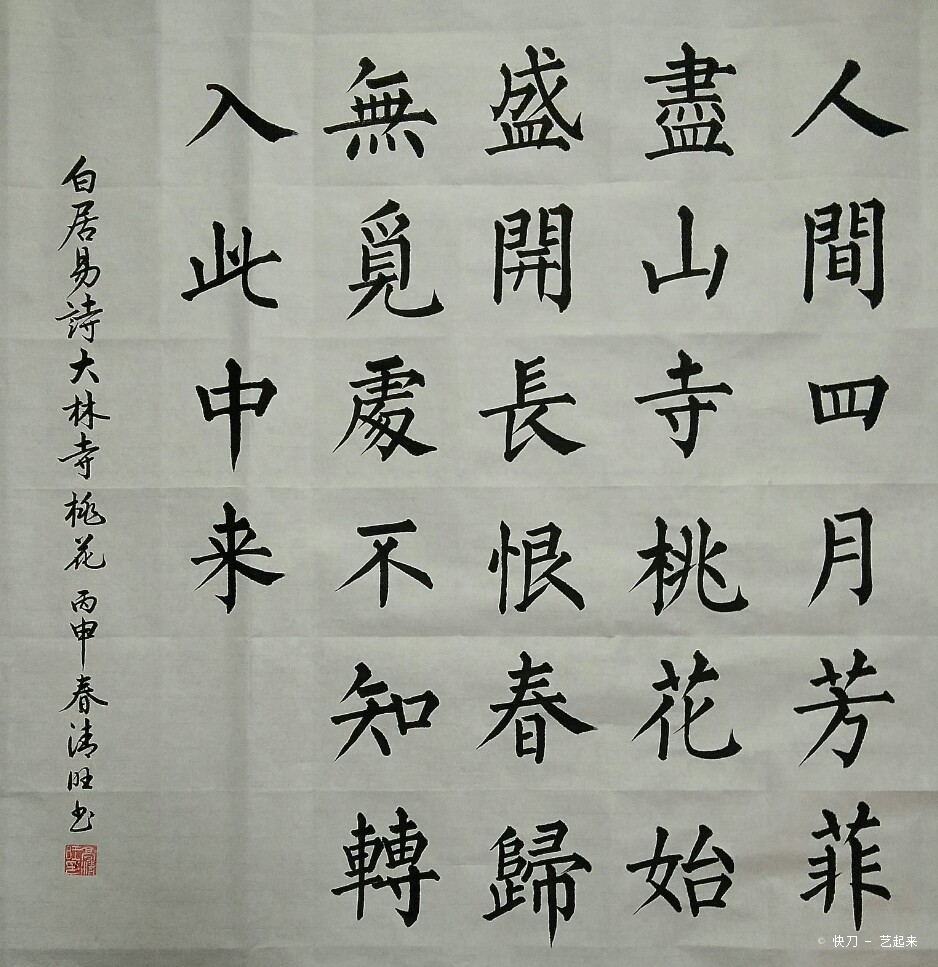 人間四月芳菲
盡山寺桃花始
盛開長恨春歸
無覓處不知轉
入此中来
白居易詩大林寺桃花 丙申春清旺书
© 快刀 - 艺起来